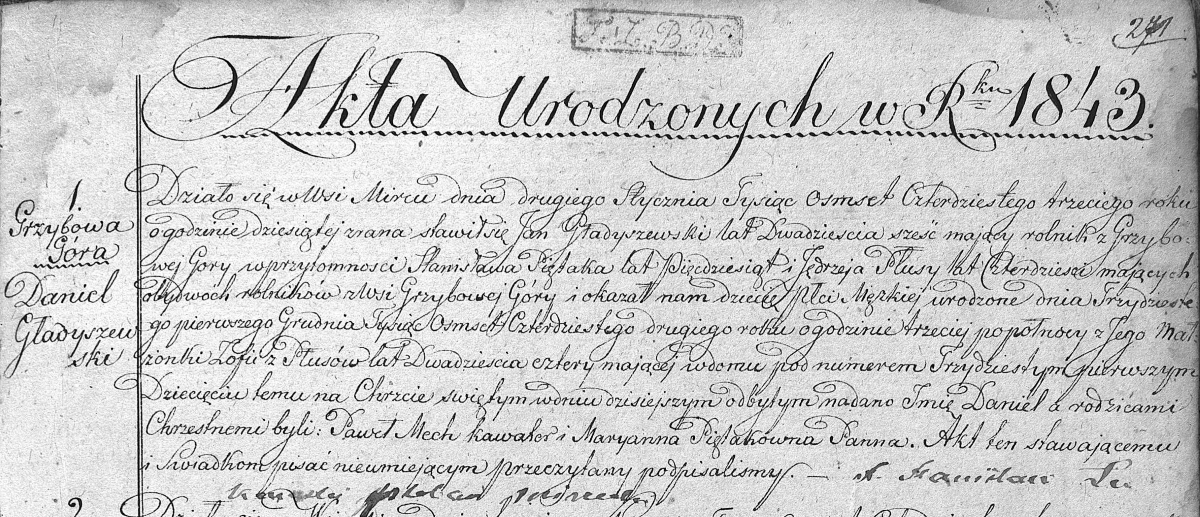 271
Akta Urodzonych w Rku 1843.
1.
Grzybowa
Góra
Daniel
Gładyszew
ski
Działo się w Wsi Mircu dnia drugiego Stycznia Tysiąc Osmset Czterdziestego trzeciego roku
o godzinie dziesiątej zrana stawił się Jan Gładyszewski lat Dwadziescia sześć mający rolnik z Grzybo-
wej Gory, w przytomnosci Stanisława Piętaka lat Pięcdziesiąt i Jędrzeja Płusy lat Czterdziesci mających
obydwoch rolników z Wsi Grzybowej Góry i okazał nam dziecię płci Męzkiej urodzone dnia Trzydzieste
go pierwszego Grudnia Tysiąc Osmset Czterdziestego drugiego roku o godzinie trzeciej popołnocy z Jego Mał
żonki Zofii z Płusow lat Dwadziescia cztery mającej w domu pod numerem Trzydziestym pierwszym
Dziecięciu temu na Chrzcie swiętym w dniu dzisiejszym odbytym nadano Imię Daniel a rodzicami
Chrzestnemi byli: Paweł Mech kawaler i Maryanna Piętakowna Panna. Akt ten stawającemu
i Swiadkom pisać nieumiejącym przeczytany podpisalismy. — X. Stanisław
2.